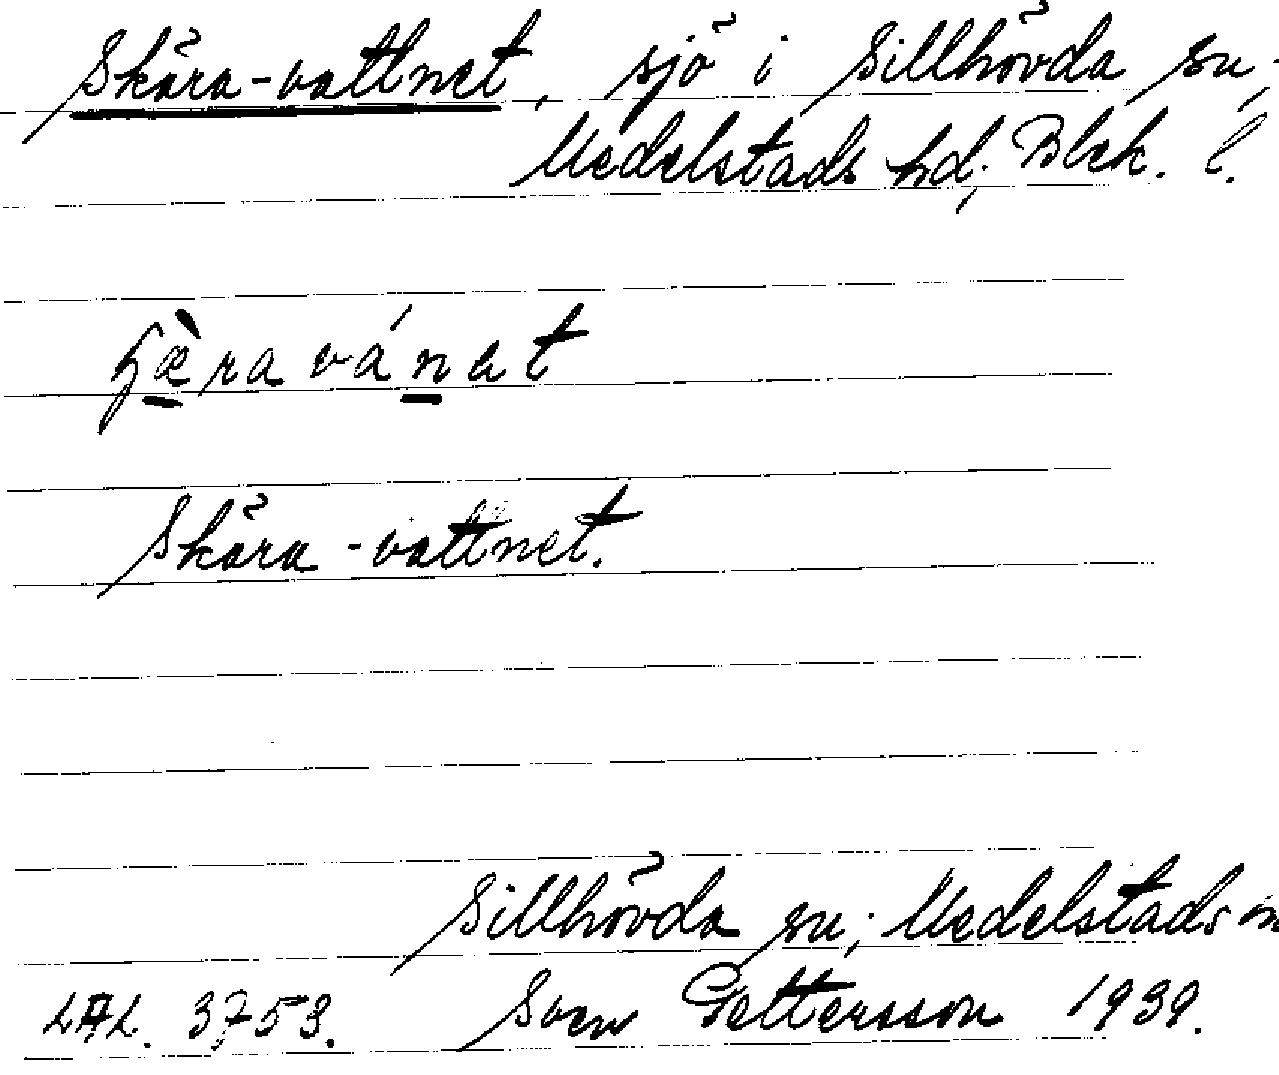 Skära-vattnet, sjö i Sillhövda sn.
Medelstads hd; Blek. l.
Skära-vattnet.
Sillhövda sn; Medelstads
3753. Sven Pettersson 1939.